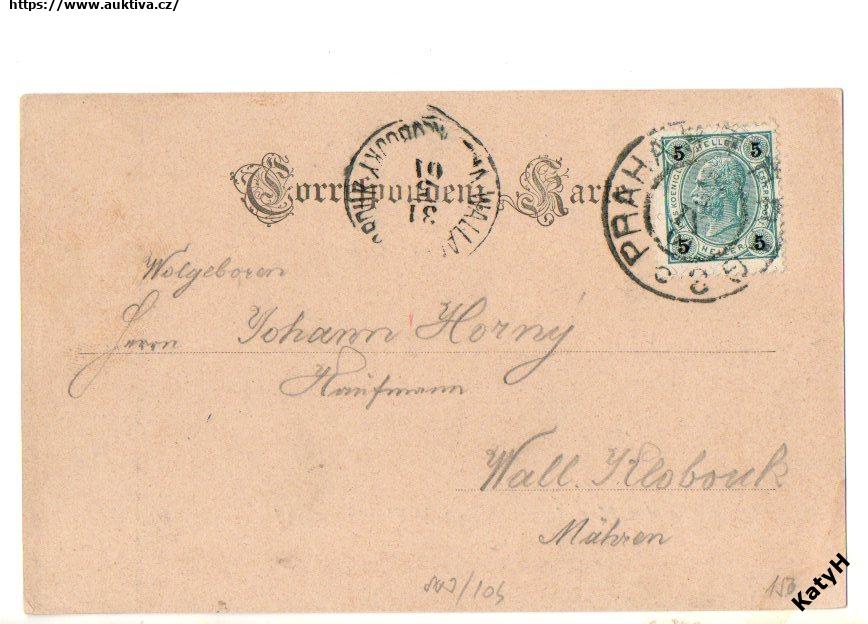 https://www.auktiva.cz/
Correspondenz-Karte
PRAHA
5 5
5 5
HELLER
31
5
01
Wolgeboren
Herrn Johann Horný
Kaufmann
Wall. Klobouk
Mähren
150
KatyH